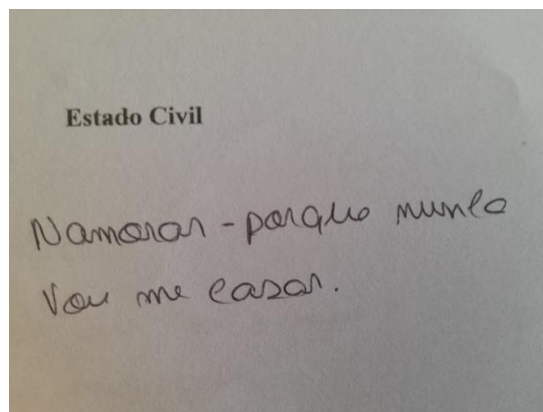 Estado Civil
Namorar - porque nunca
Vou me casar.